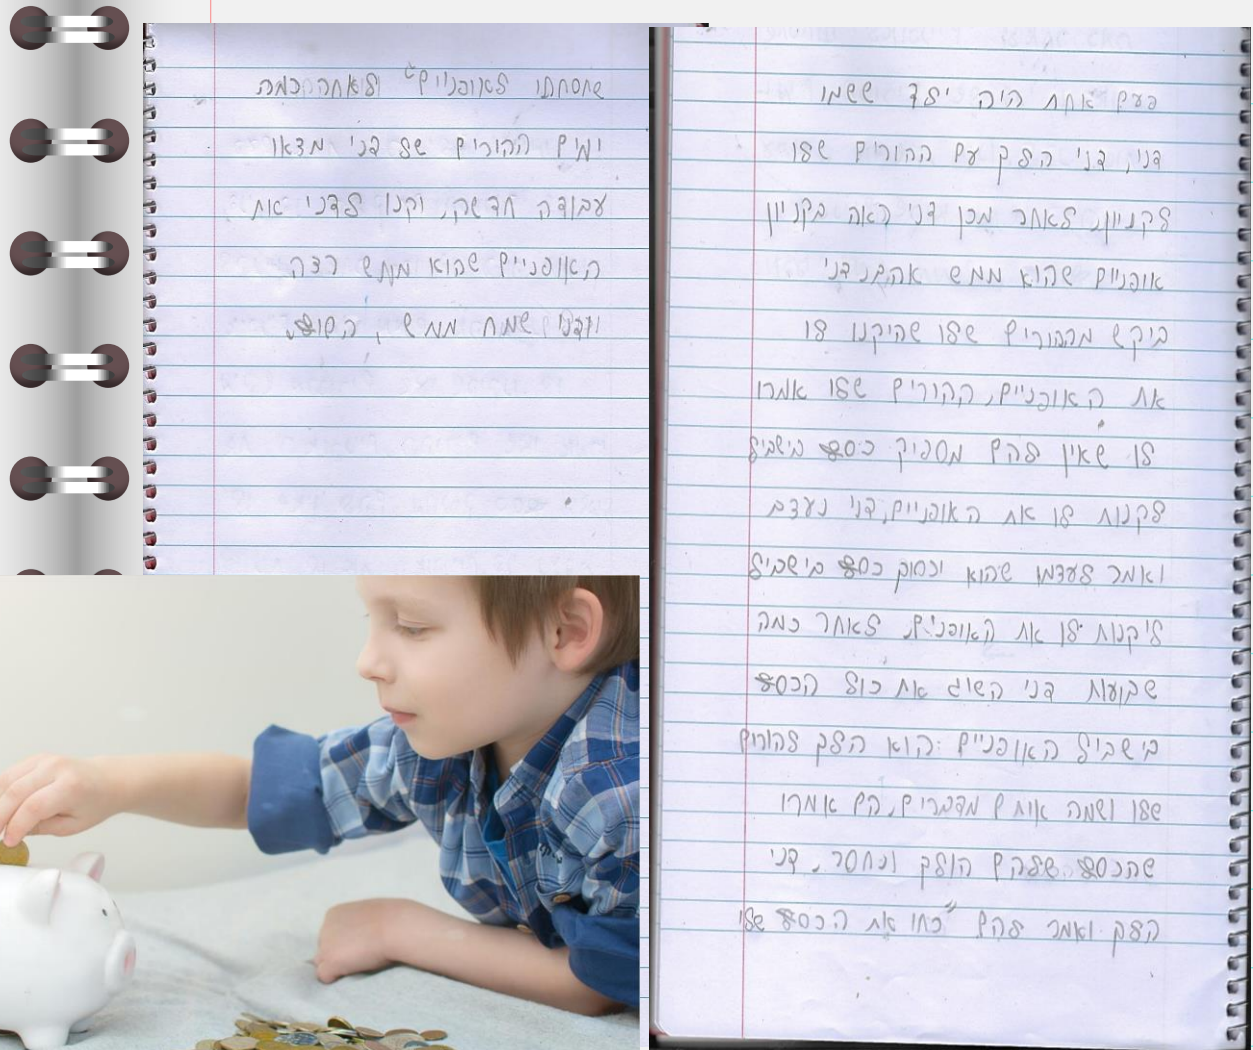 פעם אחת היה ילד ששמו
דני, דני הלך עם ההורים שלו
לקניון, לאחר מכן דני ראה בקניון
אופניים שהוא ממש אהב, דני
ביקש מההורים שלו שהיקנו לו
את האופניים, ההורים שלו אמרו
לו שאין להם מספיק כסף בישביל
לקנות לו את האופניים, דני נעלב
ואמר לעצמו שהוא יכסוף כסף בישביל
ליקנות לו את האופניים, לאחר כמה
שבועות דני השיג את כול הכסף
בישביל האופניים הוא הלך להורים
שלו ושמה אותם מדברים, הם אמרו
שהכסף שלהם הולך ונחסר, דני
הלך ואמר להם "כחו את הכסף שלי
שחסחתי לאופניים" ולאחר כמה
ימים ההורים של דני מצאו
עבודה חדשה, וקנו לדני את
האופניים שהוא ממש רצה
ודני שמח ממש, הסוף.